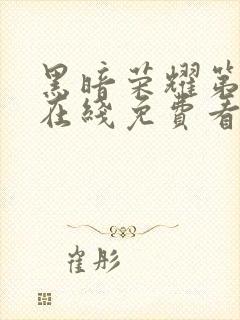 黑暗荣耀第
在綫免費看
崔彤